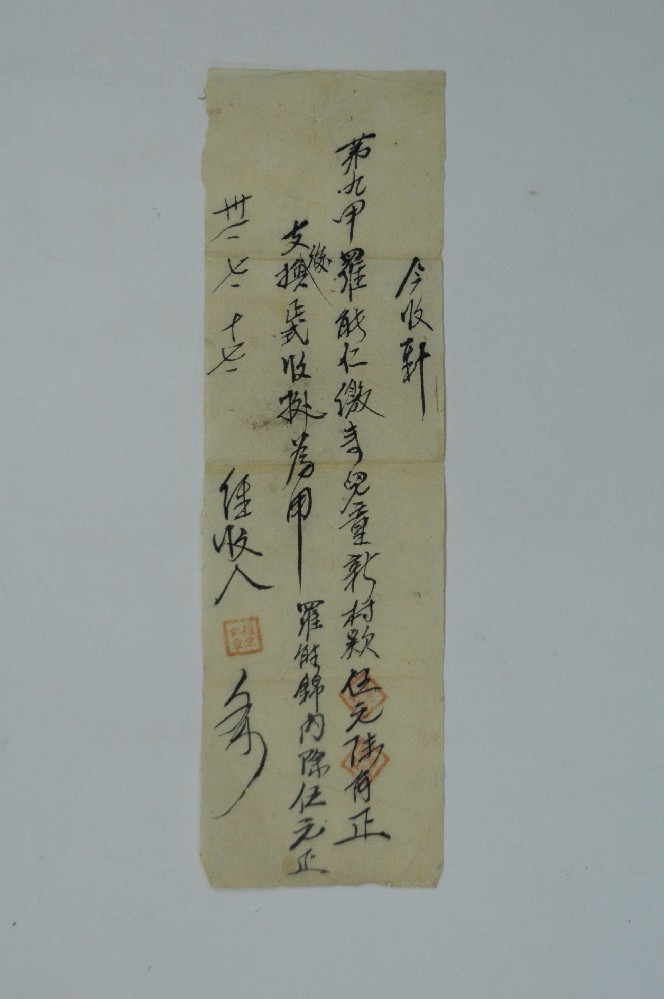 今收到
第九甲羅能仁繳來兒童新村款伍元陸角正
支後換正式收据為用 羅能錦內除伍元正
卅二 七 十七 經收人